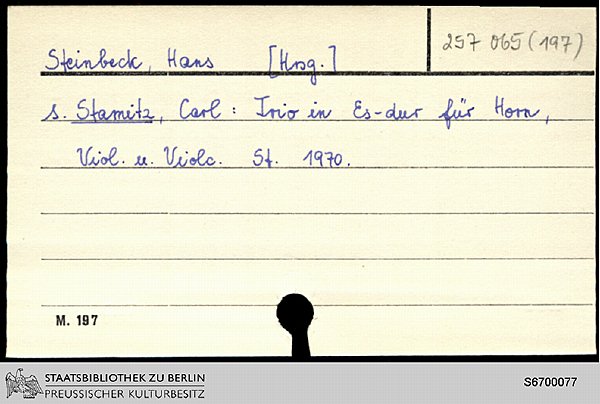 Steinbeck, Hans [Hrsg.]
257 065 (197)
s. Stamitz, Carl: Trio in Es-dur für Horn,
Viol. u. Violc. St. 1970.
M. 197
STAATSBIBLIOTHEK ZU BERLIN
PREUSSISCHER KULTURBESITZ
S6700077